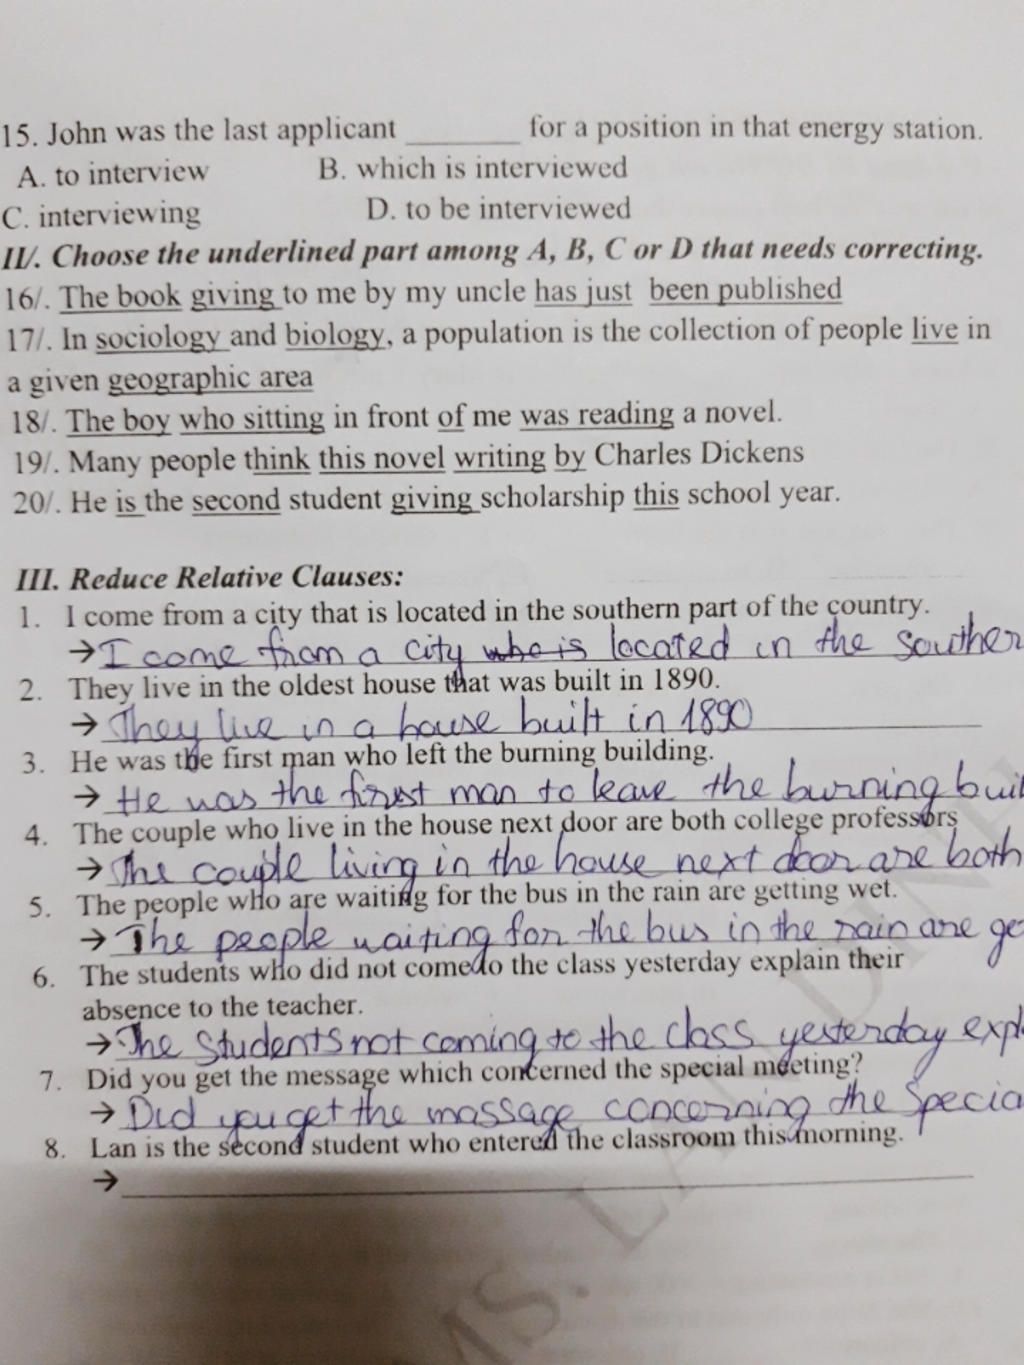 15. John was the last applicant ________ for a position in that energy station.
A. to interview B. which is interviewed
C. interviewing D. to be interviewed
II/. Choose the underlined part among A, B, C or D that needs correcting.
16/. The book giving to me by my uncle has just been published
17/. In sociology and biology, a population is the collection of people live in
a given geographic area
18/. The boy who sitting in front of me was reading a novel.
19/. Many people think this novel writing by Charles Dickens
20/. He is the second student giving scholarship this school year.
III. Reduce Relative Clauses:
1. I come from a city that is located in the southern part of the country.
→ I come from a city located in the souther
2. They live in the oldest house that was built in 1890.
→ They live in a house built in 1890
3. He was the first man who left the burning building.
→ He was the first man to leave the burning buil
4. The couple who live in the house next door are both college professors
→ The couple living in the house next door are both
5. The people who are waiting for the bus in the rain are getting wet.
→ The people waiting for the bus in the rain are ge
6. The students who did not come to the class yesterday explain their
absence to the teacher.
→ The students not coming to the class yesterday expl
7. Did you get the message which concerned the special meeting?
→ Did you get the massage concerning the specia
8. Lan is the second student who entered the classroom this morning.
→
MS. LAN DINH